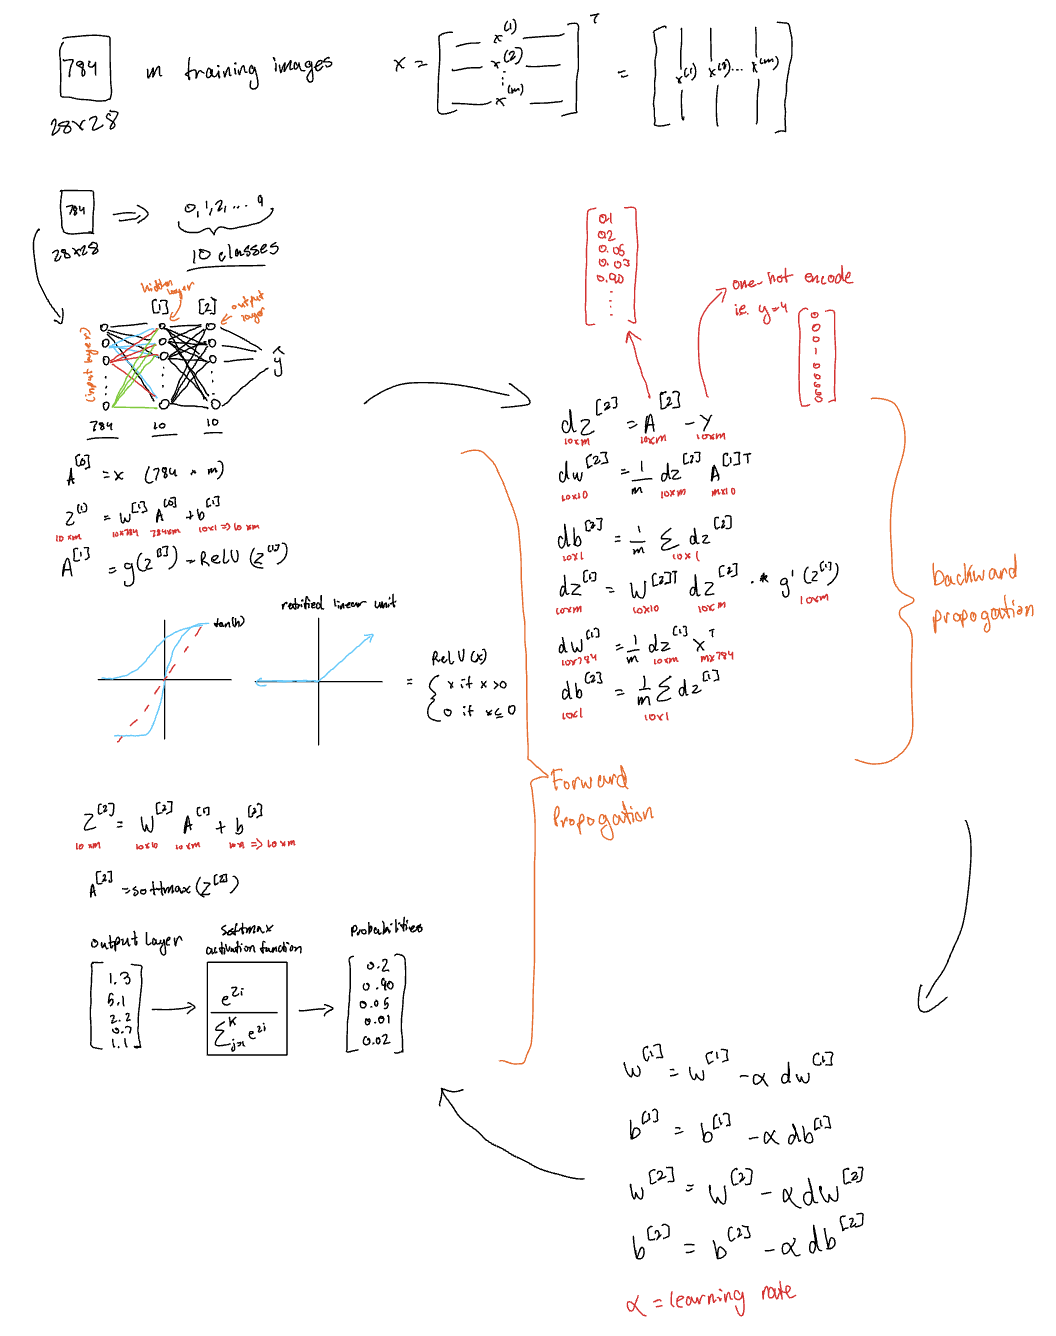 784
28x28
m training images
x = [ — x^(1) — — x^(2) — ⋮ — x^(m) — ]^T = [ x^(1) x^(2) ... x^(m) ]
784
28x28
⇒ 0, 1, 2, ... 9
10 classes
hidden layer
[1] [2]
output layer
(input layer)
ŷ
784 10 10
A^[0] = x (784 × m)
Z^(1) = W^[1] A^[0] + b^[1]
10 xm 10x784 784xm 10x1 => 10 xm
A^[1] = g(z^[1]) = ReLU (z^(1))
tan(h)
rectified linear unit
= ReLU(x) { x if x > 0
0 if x ≤ 0
Forward
Propogation
Z^[2] = W^[2] A^[1] + b^[2]
10 xm 10x10 10xm 10x1 => 10 xm
A^[2] = softmax (Z^[2])
output Layer
1.3
5.1
2.2
0.7
1.1
softmax
activation function
e^zi
Σ^K j=1 e^zi
Probabilities
0.2
0.90
0.05
0.01
0.02
0.1
0.2
0.05
0.03
0.90
one-hot encode
i.e. y=4
0
0
0
1
0
0
0
0
0
dz^[2] = A^[2] - Y
10xm 10xm 10xm
dw^[2] = 1/m dz^[2] A^[1]T
10x10 10xm mx10
db^[2] = 1/m Σ dz^[2]
10x1 10x1
dz^[1] = W^[2]T dz^[2] .* g' (z^[1])
10xm 10x10 10xm 10xm
dw^[1] = 1/m dz^[1] X^T
10x784 10xm mx784
db^[2] = 1/m Σ dz^[1]
10x1 10x1
backward
propogation
w^[1] = w^[1] - α dw^[1]
b^[1] = b^[1] - α db^[1]
w^[2] = w^[2] - α dw^[2]
b^[2] = b^[2] - α db^[2]
α = learning rate